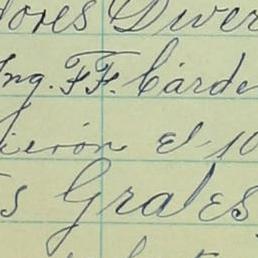 ores Diver
Ing. FF. Cárde
ieron el 10
s Grales